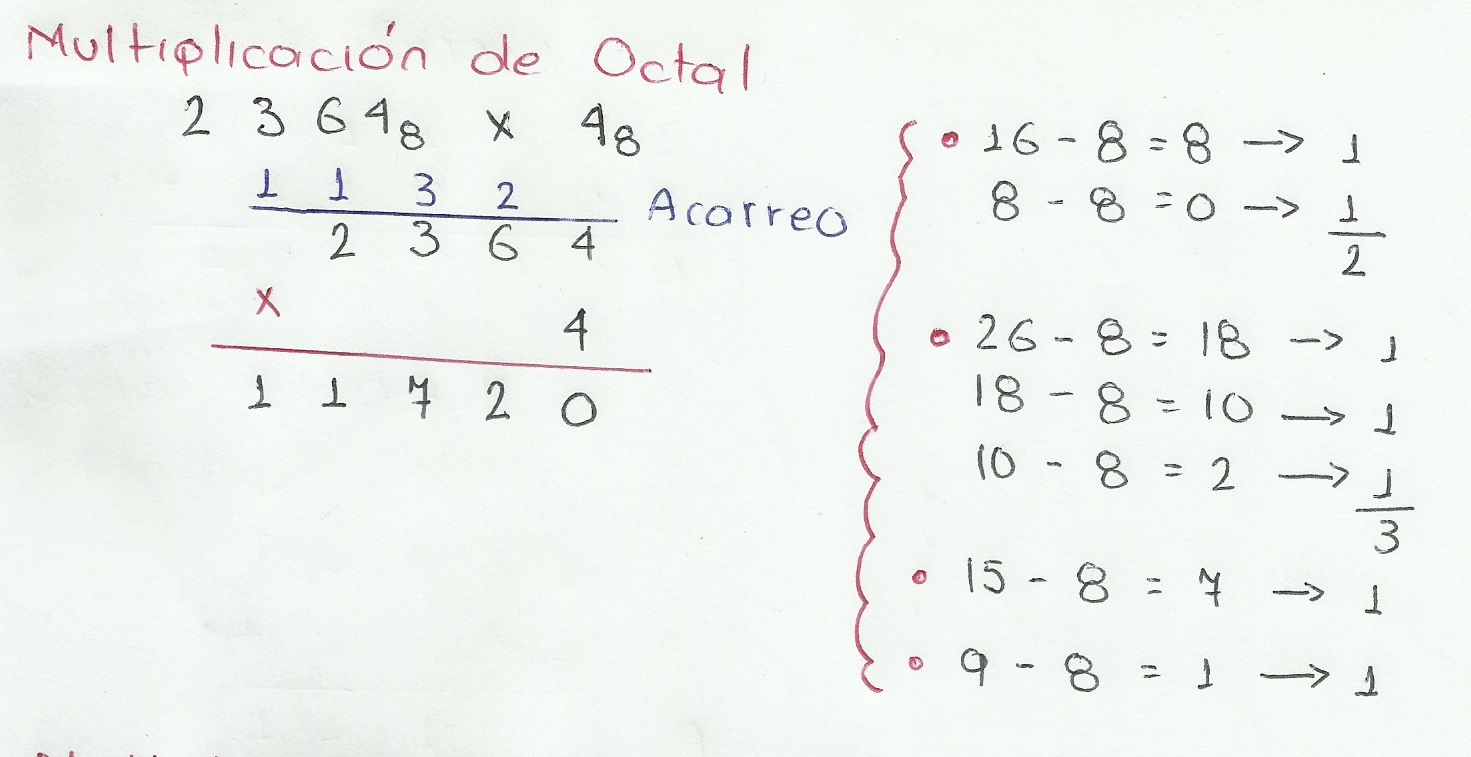 Multiplicación de Octal
2 3 6 4₈ x 4₈
1 1 3 2 Acarreo
2 3 6 4
x
4
1 1 7 2 0
• 16 - 8 = 8 → 1
8 - 8 = 0 → 1
2
• 26 - 8 = 18 → 1
18 - 8 = 10 → 1
10 - 8 = 2 → 1
3
• 15 - 8 = 7 → 1
• 9 - 8 = 1 → 1